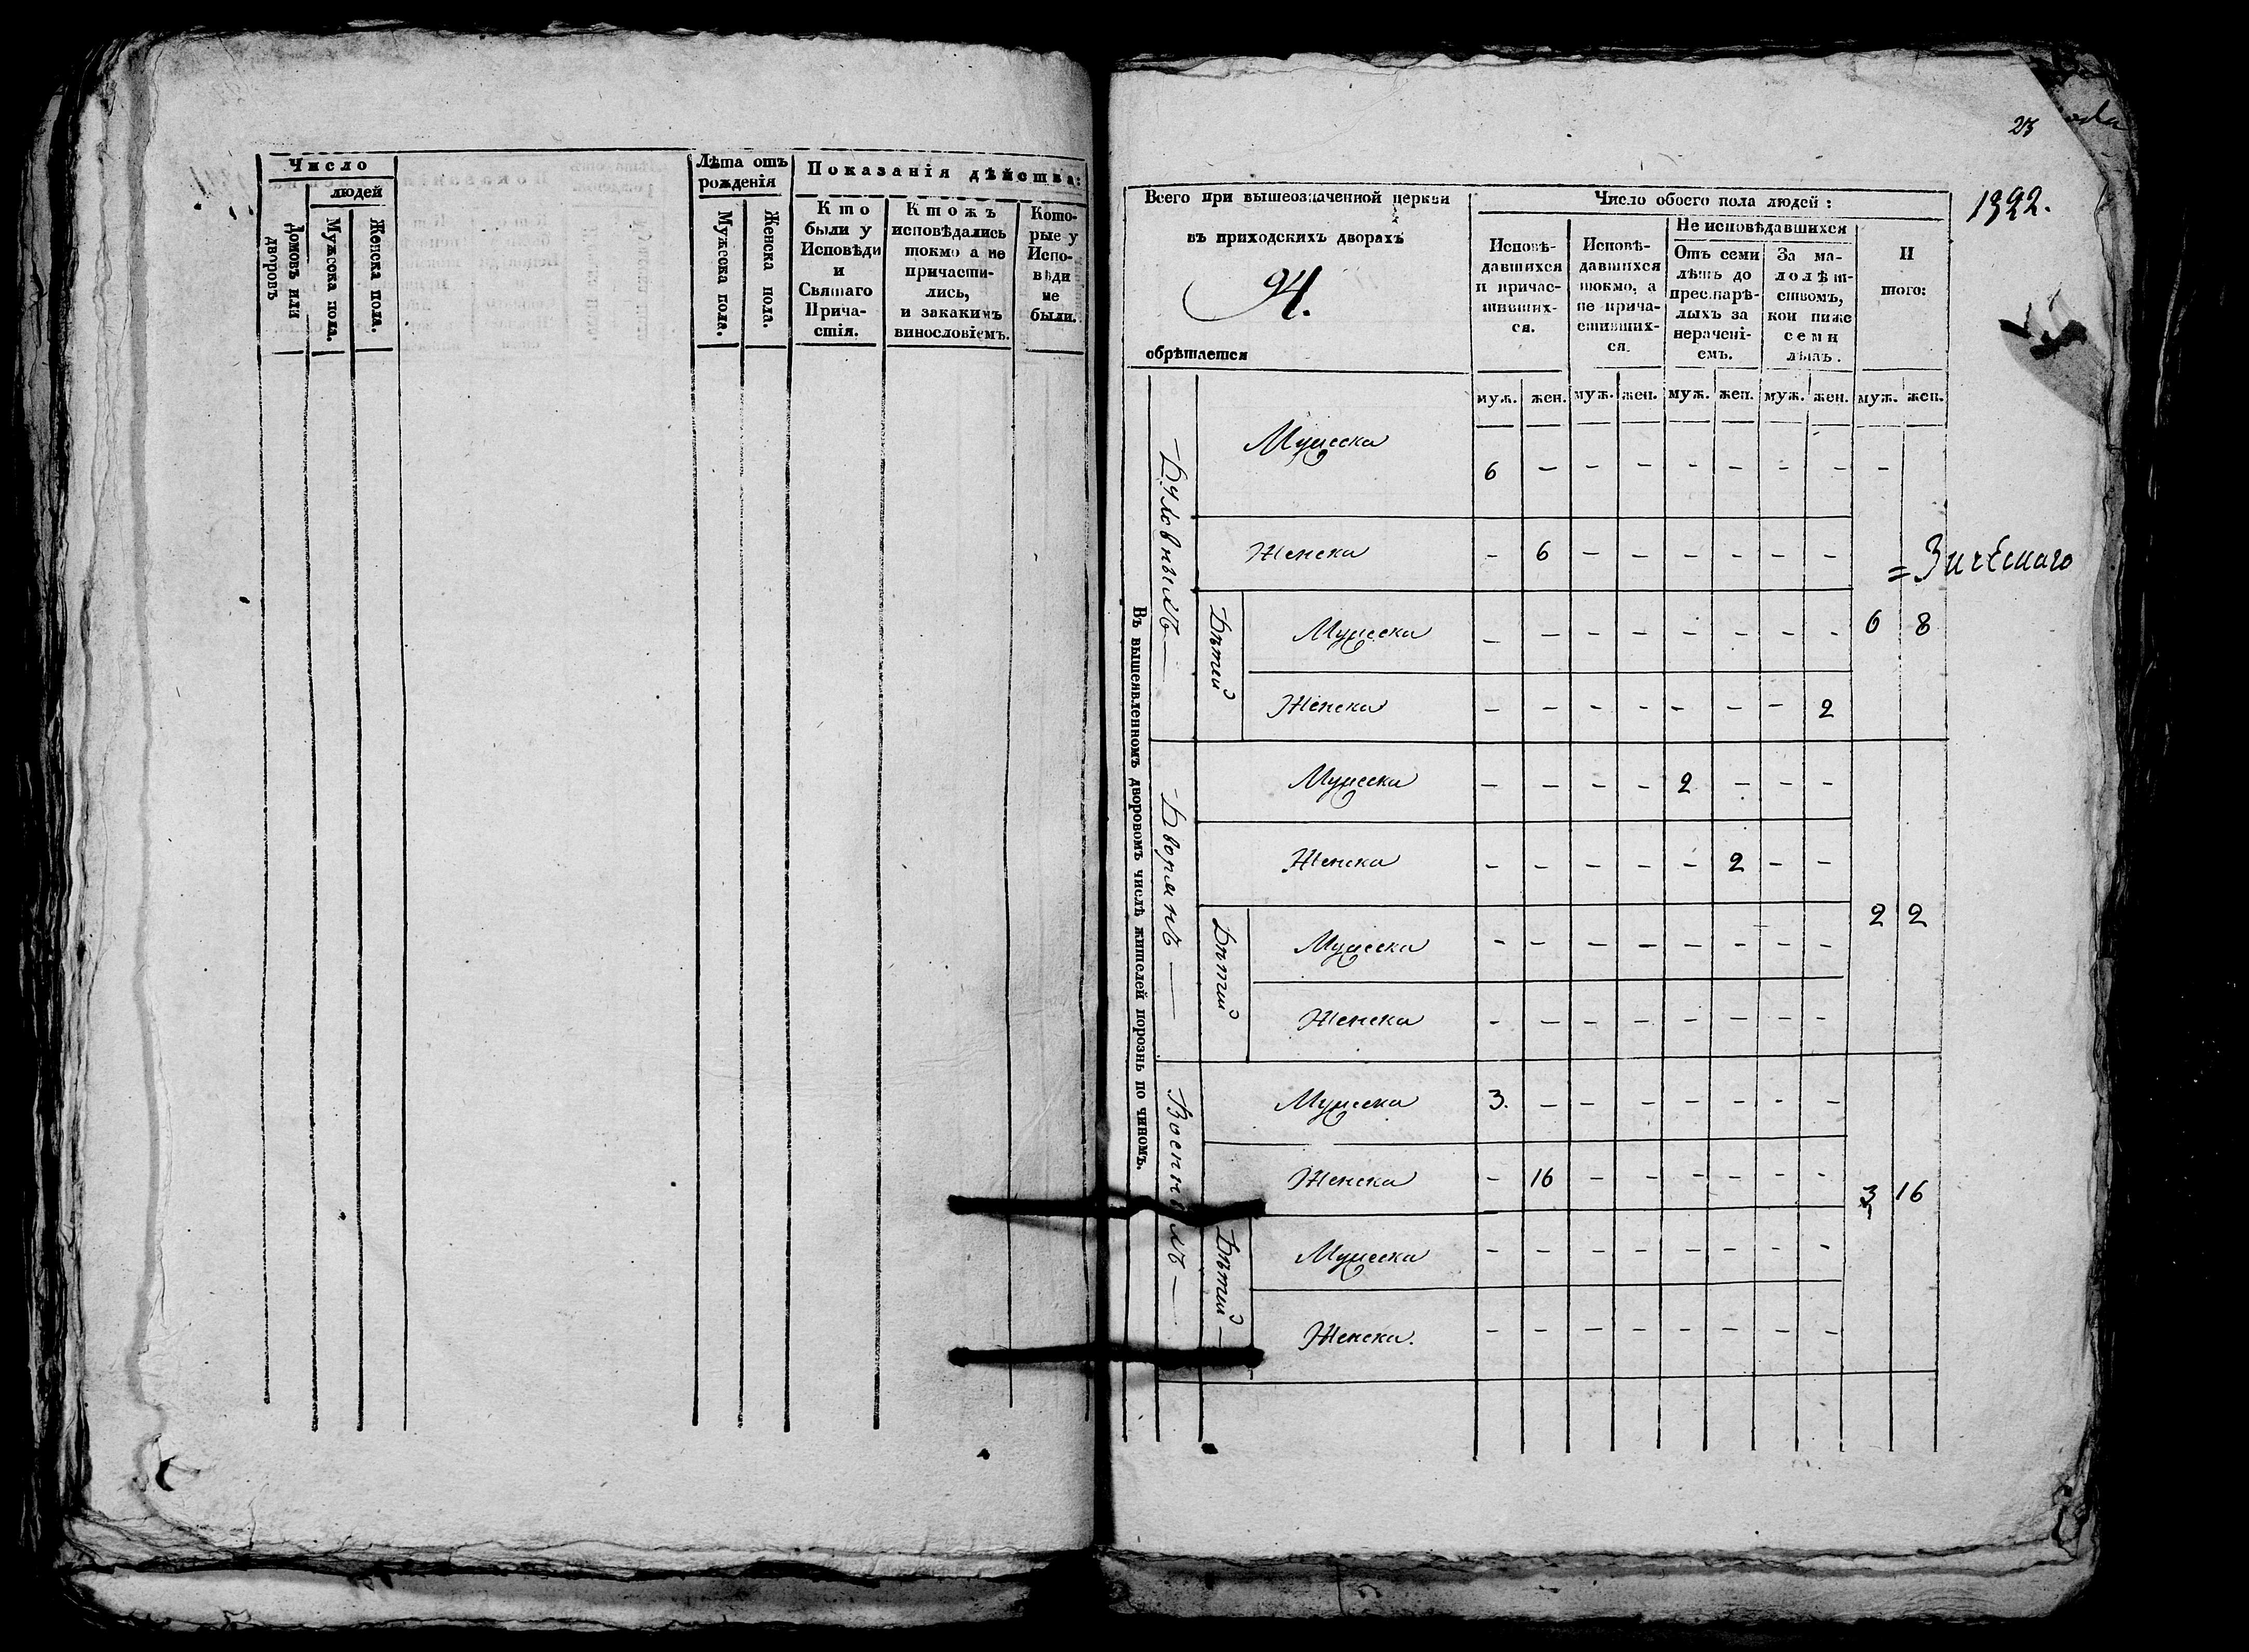 Число
людей
Домовъ или дворовъ
Мужеска пола.
Женска пола.
Лѣта отъ
рожденія
Мужеска пола.
Женска пола.
Показанія дѣйства:
Кто
были у
Исповѣди
и
Святаго
Прича-
стія.
Ктожъ
исповѣдались
токмо а не
причасти-
лись,
и закакимъ
винословіемъ.
Кото-
рые у
Испо-
вѣди
не
были.
23
1322.
Всего при вышеозначенной церкви
въ приходскихъ дворахъ
94.
обрѣтается
Число обоего пола людей:
Исповѣ-
давшихся
и причас-
тивших-
ся.
Исповѣ-
давшихся
токмо, а
не прича-
стивших-
ся.
Не исповѣдавшихся
Отъ семи
лѣтъ до
престарѣ-
лыхъ за
нераченi-
емъ.
За ма-
лолѣт-
ствомъ,
кои ниже
семи
лѣтъ.
И
того:
муж. жен. муж. жен. муж. жен. муж. жен. муж. жен.
Въ вышеявленномъ дворовомъ числѣ жителей порознь по чиномъ.
Духовныхъ —
Мужеска 6 - - - - - - - -
Женска - 6 - - - - - -
Дѣтей
Мужеска - - - - - - - - 6 8
Женска - - - - - - - 2
Дворянъ —
Мужеска - - - - 2 - - -
Женска - - - - - 2 - -
2 2
Дѣтей
Мужеска - - - - - - - -
Женска - - - - - - - -
Военныхъ —
Мужеска 3. - - - - - - -
Женска - 16 - - - - - -
3 16
Дѣтей —
Мужеска - - - - - - - -
Женска. - - - - - - - -